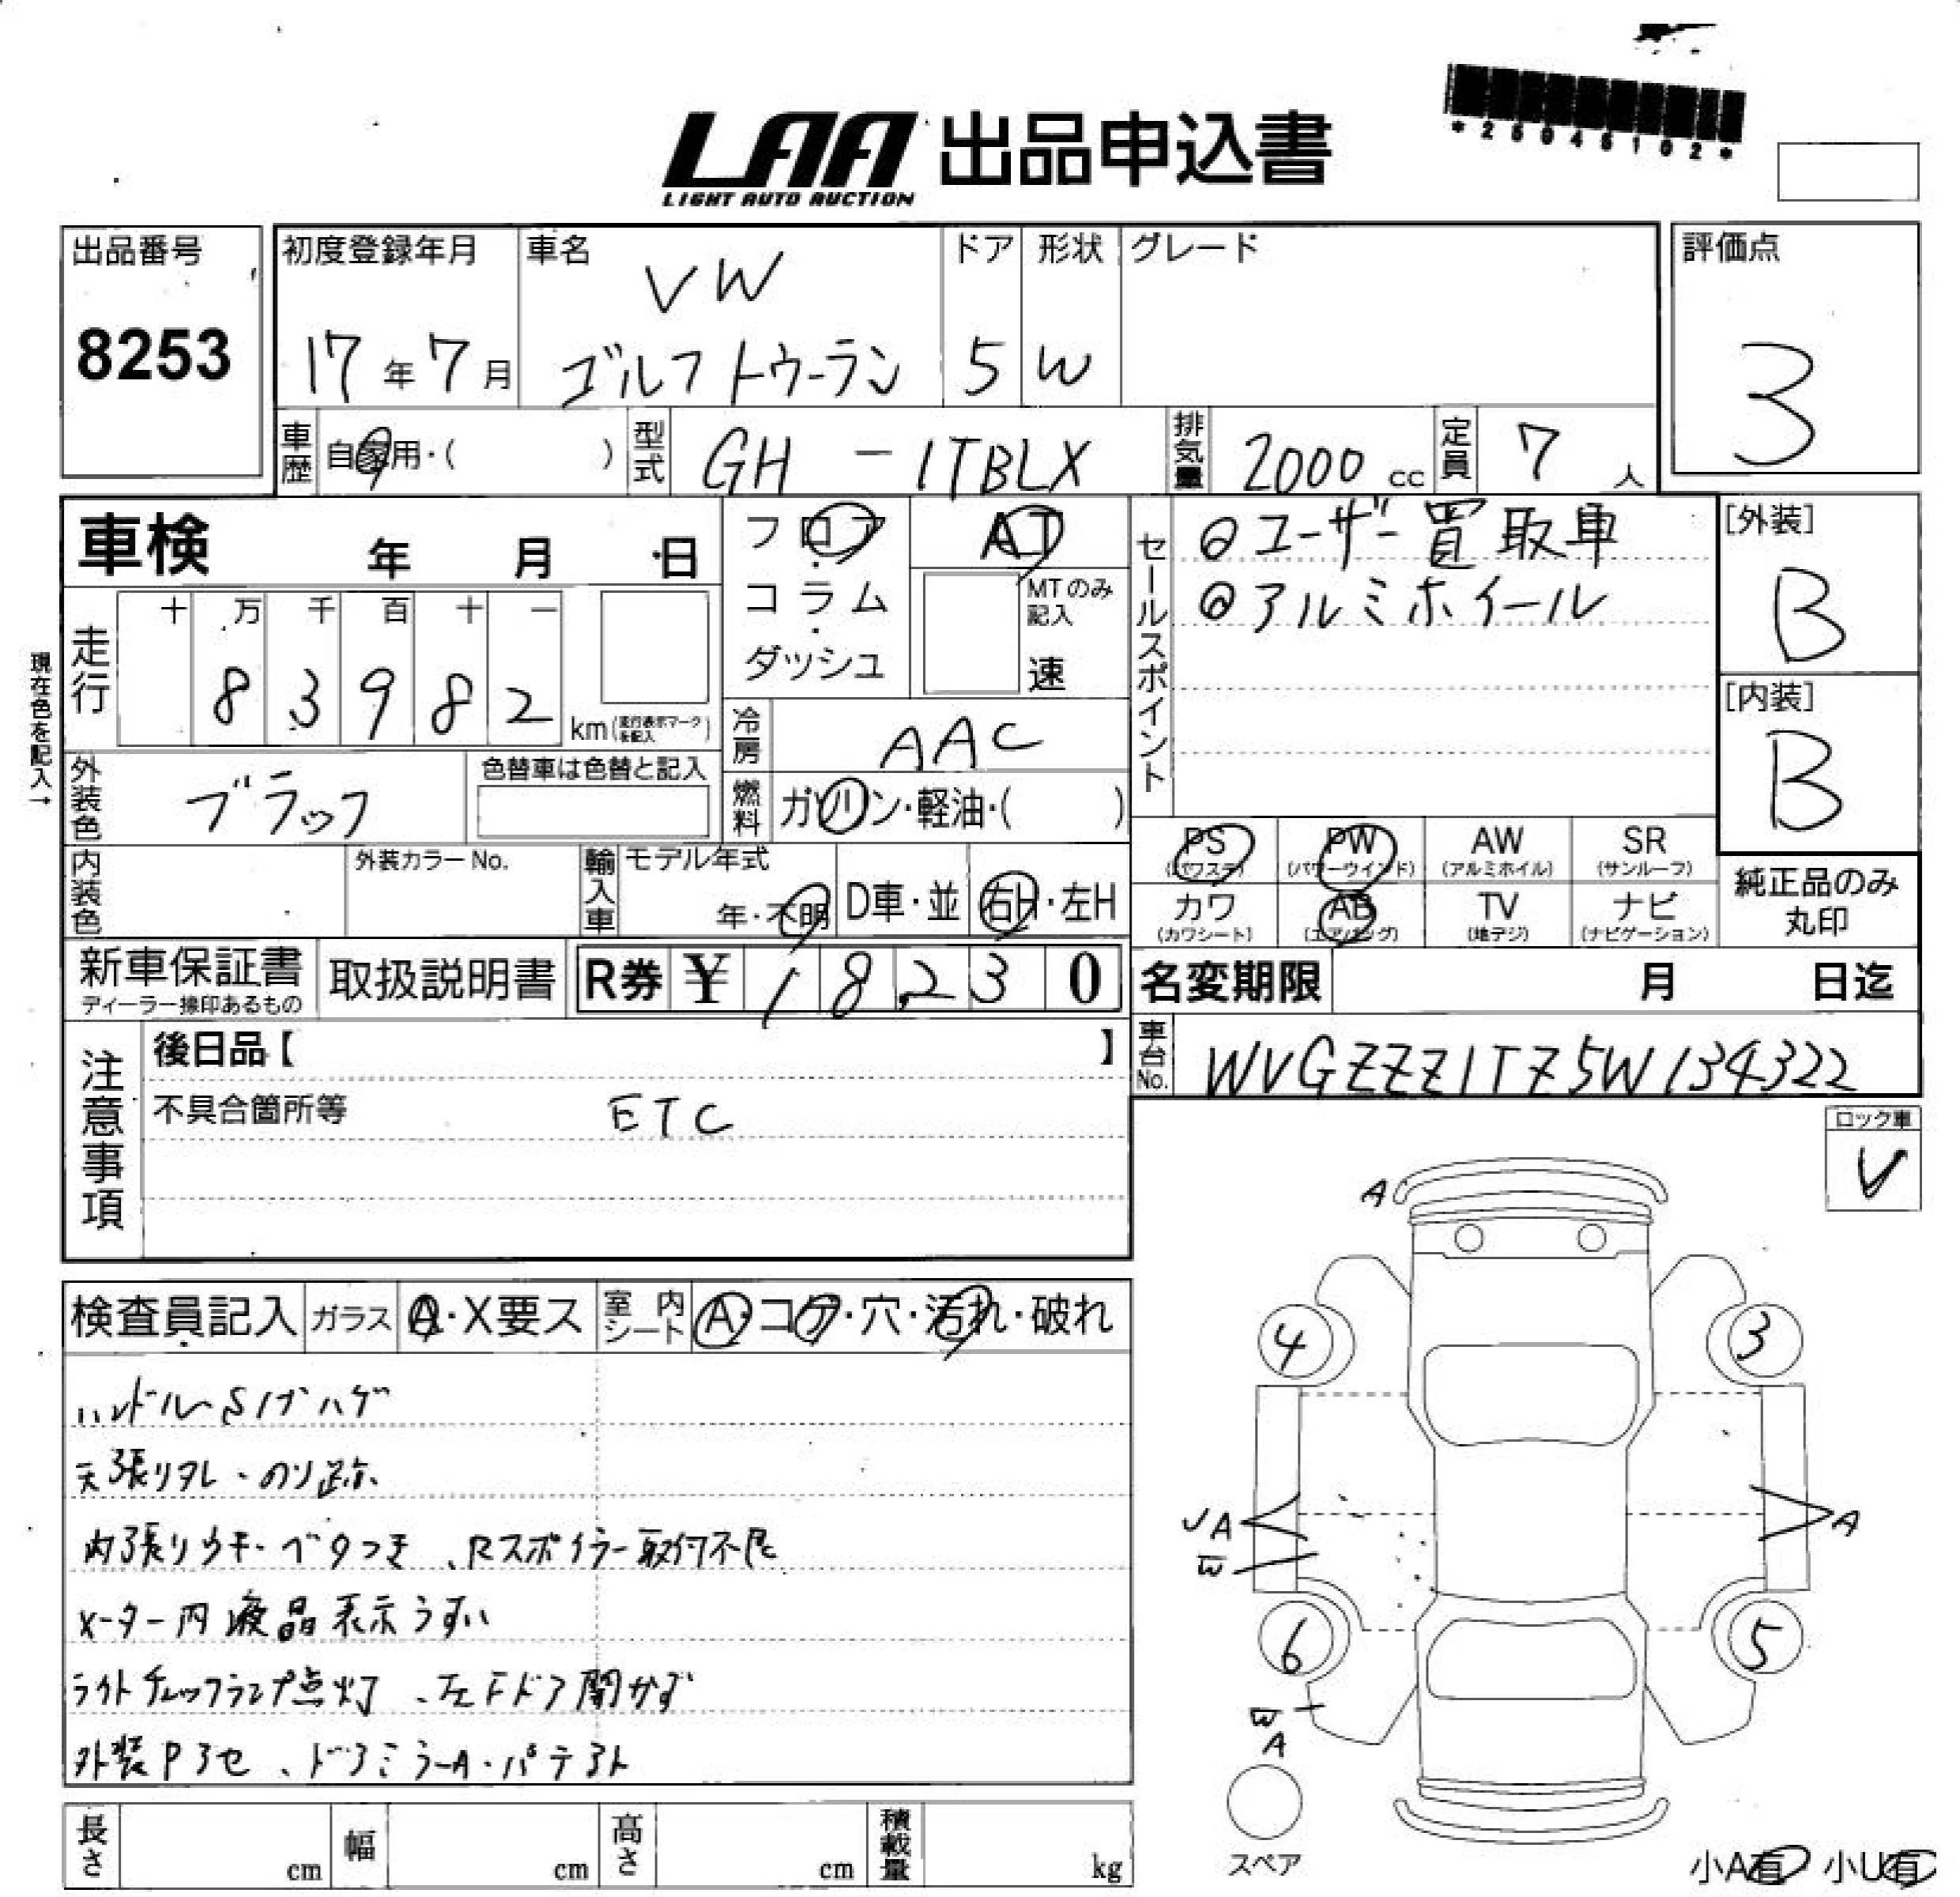 *25045102*
LAA 出品申込書
LIGHT AUTO AUCTION
出品番号
8253
初度登録年月
17年7月
車名
VW
ゴルフトゥーラン
ドア
5
形状
W
グレード
評価点
3
車歴 自家用・( )
型式 GH-1TBLX
排気量 2000cc
定員 7人
車検 年 月 日
走行 十 万 千 百 十 一
8 3 9 8 2
km(走行表示マークを記入)
現在色を記入→
外装色 ブラック
色替車は色替と記入
内装色
外装カラーNo.
フロア・コラム・ダッシュ
AT
MTのみ記入
速
冷房 AAC
燃料 ガソリン・軽油・( )
輸入車 モデル年式
年・不明
D車・並
右H・左H
セールスポイント
◎ユーザー買取車
◎アルミホイール
[外装]
B
[内装]
B
PS (パワステ)
PW (パワーウインド)
AW (アルミホイル)
SR (サンルーフ)
カワ (カワシート)
AB (エアバッグ)
TV (地デジ)
ナビ (ナビゲーション)
純正品のみ丸印
新車保証書
ディーラー捺印あるもの
取扱説明書
R券 ¥18,230
名変期限 月 日迄
車台No. WVGZZZ1TZ5W134322
注意事項
後日品【 】
不具合箇所等
ETC
ロック車
V
検査員記入
ガラス A・X要ス
室内シート A・コゲ・穴・汚れ・破れ
ハンドルSTゲハゲ
天張りタレ・のり跡
内張りウキ・ベタつき、Rスポイラー取付不良
メーター内液晶表示うすい
ライトチェックランプ点灯、左Fドア開かず
外装Pアセ、ドアミラーA・パテアト
A
4
3
UA
W
A
6
5
W
A
スペア
小A有 小U有
長さ cm
幅 cm
高さ cm
積載量 kg